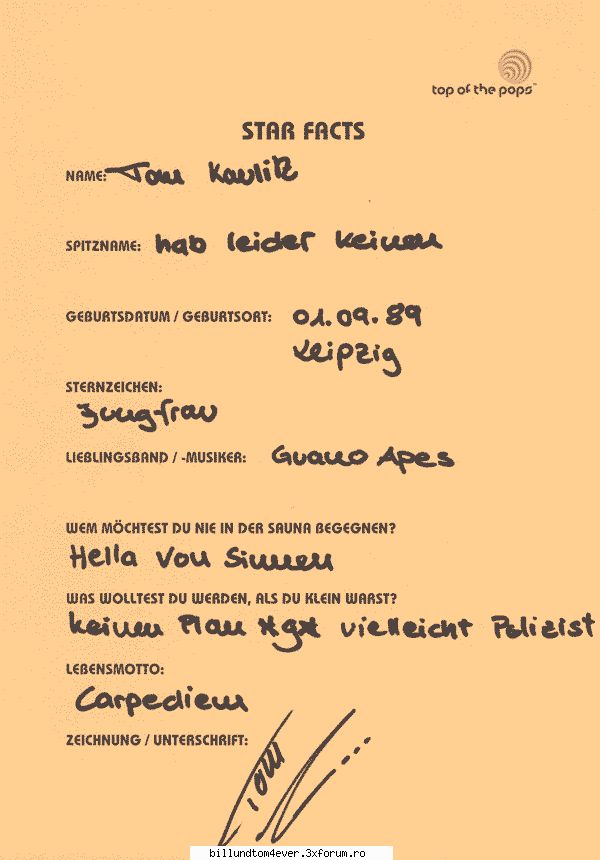 top of the pops™
STAR FACTS
NAME: Tom Kaulitz
SPITZNAME: hab leider keinen
GEBURTSDATUM / GEBURTSORT: 01.09.89
Leipzig
STERNZEICHEN:
Jungfrau
LIEBLINGSBAND / -MUSIKER: Guano Apes
WEM MÖCHTEST DU NIE IN DER SAUNA BEGEGNEN?
Hella von Sinnen
WAS WOLLTEST DU WERDEN, ALS DU KLEIN WARST?
keinen Plan *g* vielleicht Polizist
LEBENSMOTTO:
Carpediem
ZEICHNUNG / UNTERSCHRIFT:
Tom
billundtom4ever.3xforum.ro